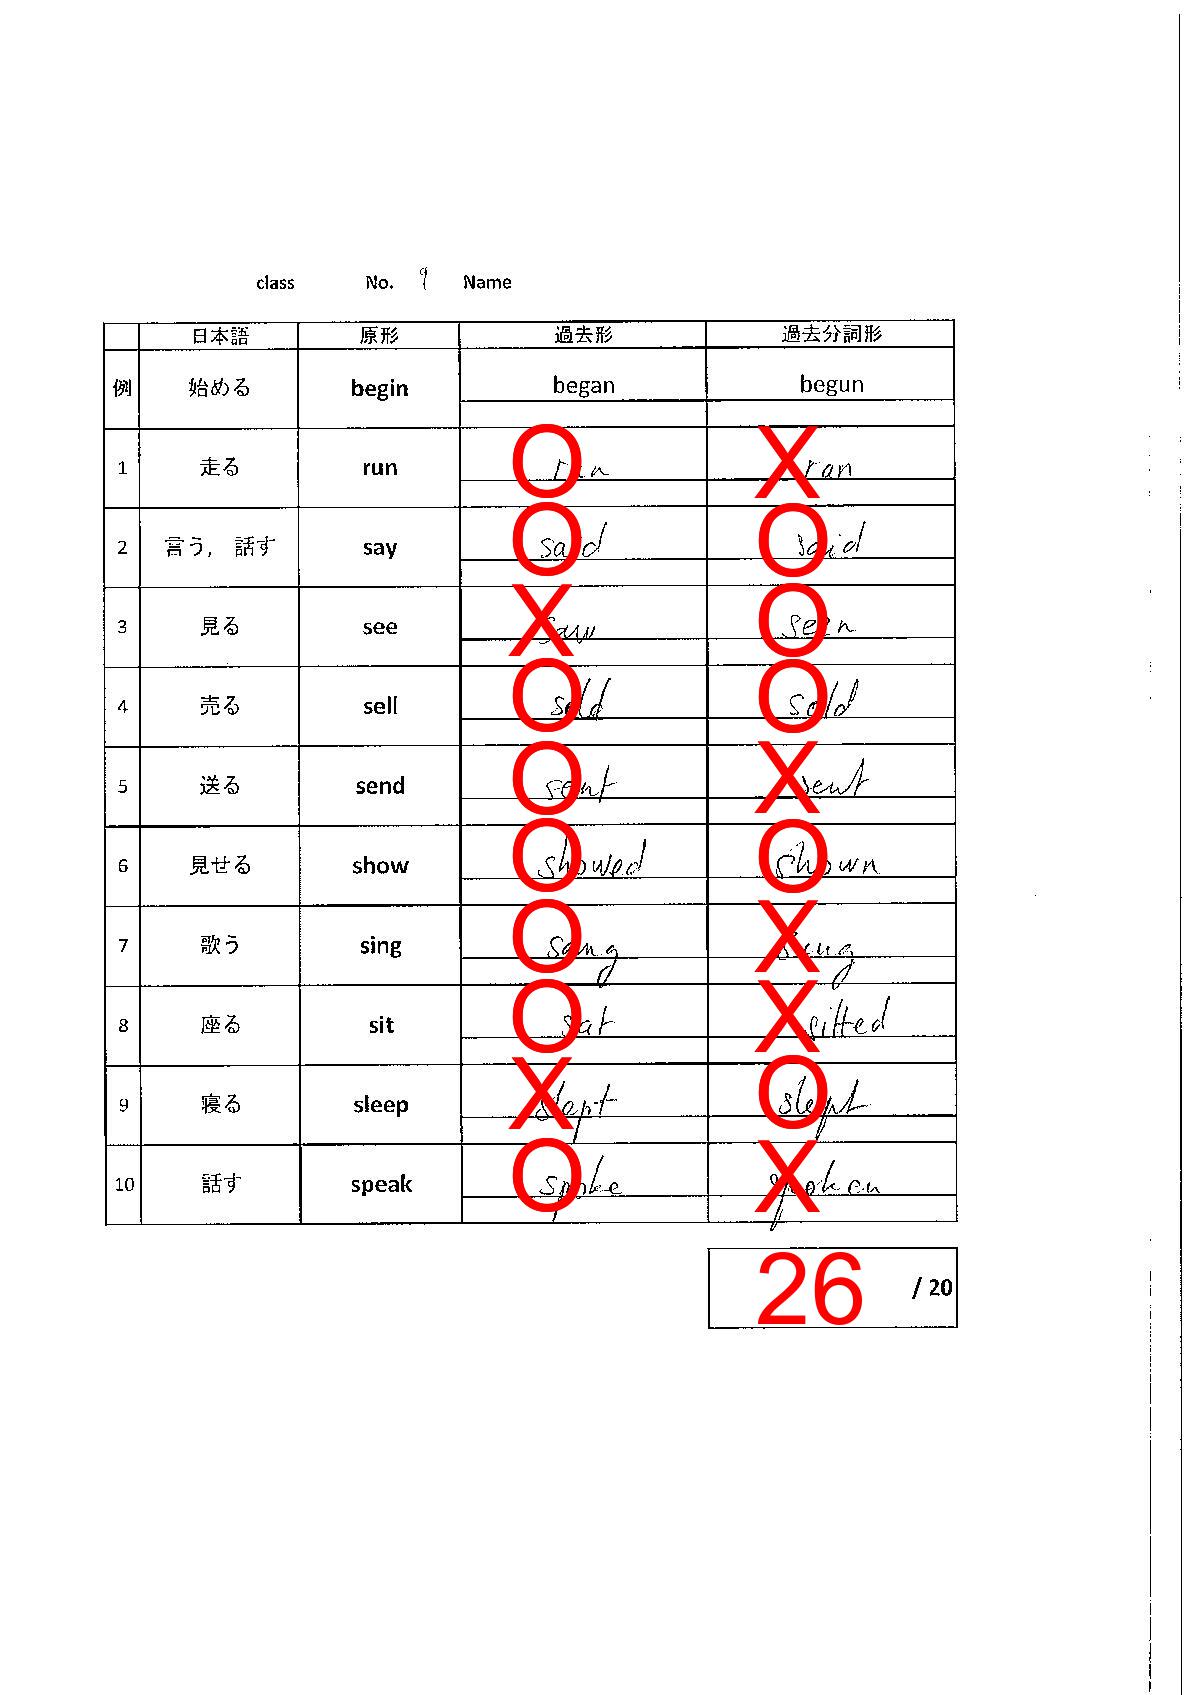 class No. 9 Name
日本語 原形 過去形 過去分詞形
例 始める begin began begun
1 走る run O X ran
2 言う, 話す say O said O said
3 見る see X saw O seen
4 売る sell O sold O sold
5 送る send O sent X sent
6 見せる show O showed O shown
7 歌う sing O sang X
8 座る sit O sat X sitted
9 寝る sleep X slapt O slept
10 話す speak O spoke X spoken
26 / 20